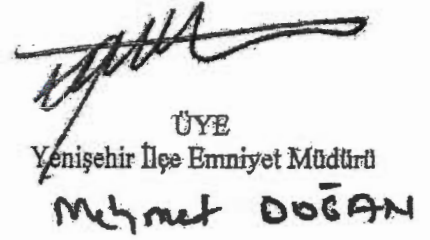 ÜYE
Yenişehir İlçe Emniyet Müdürü
Mehmet DOĞAN